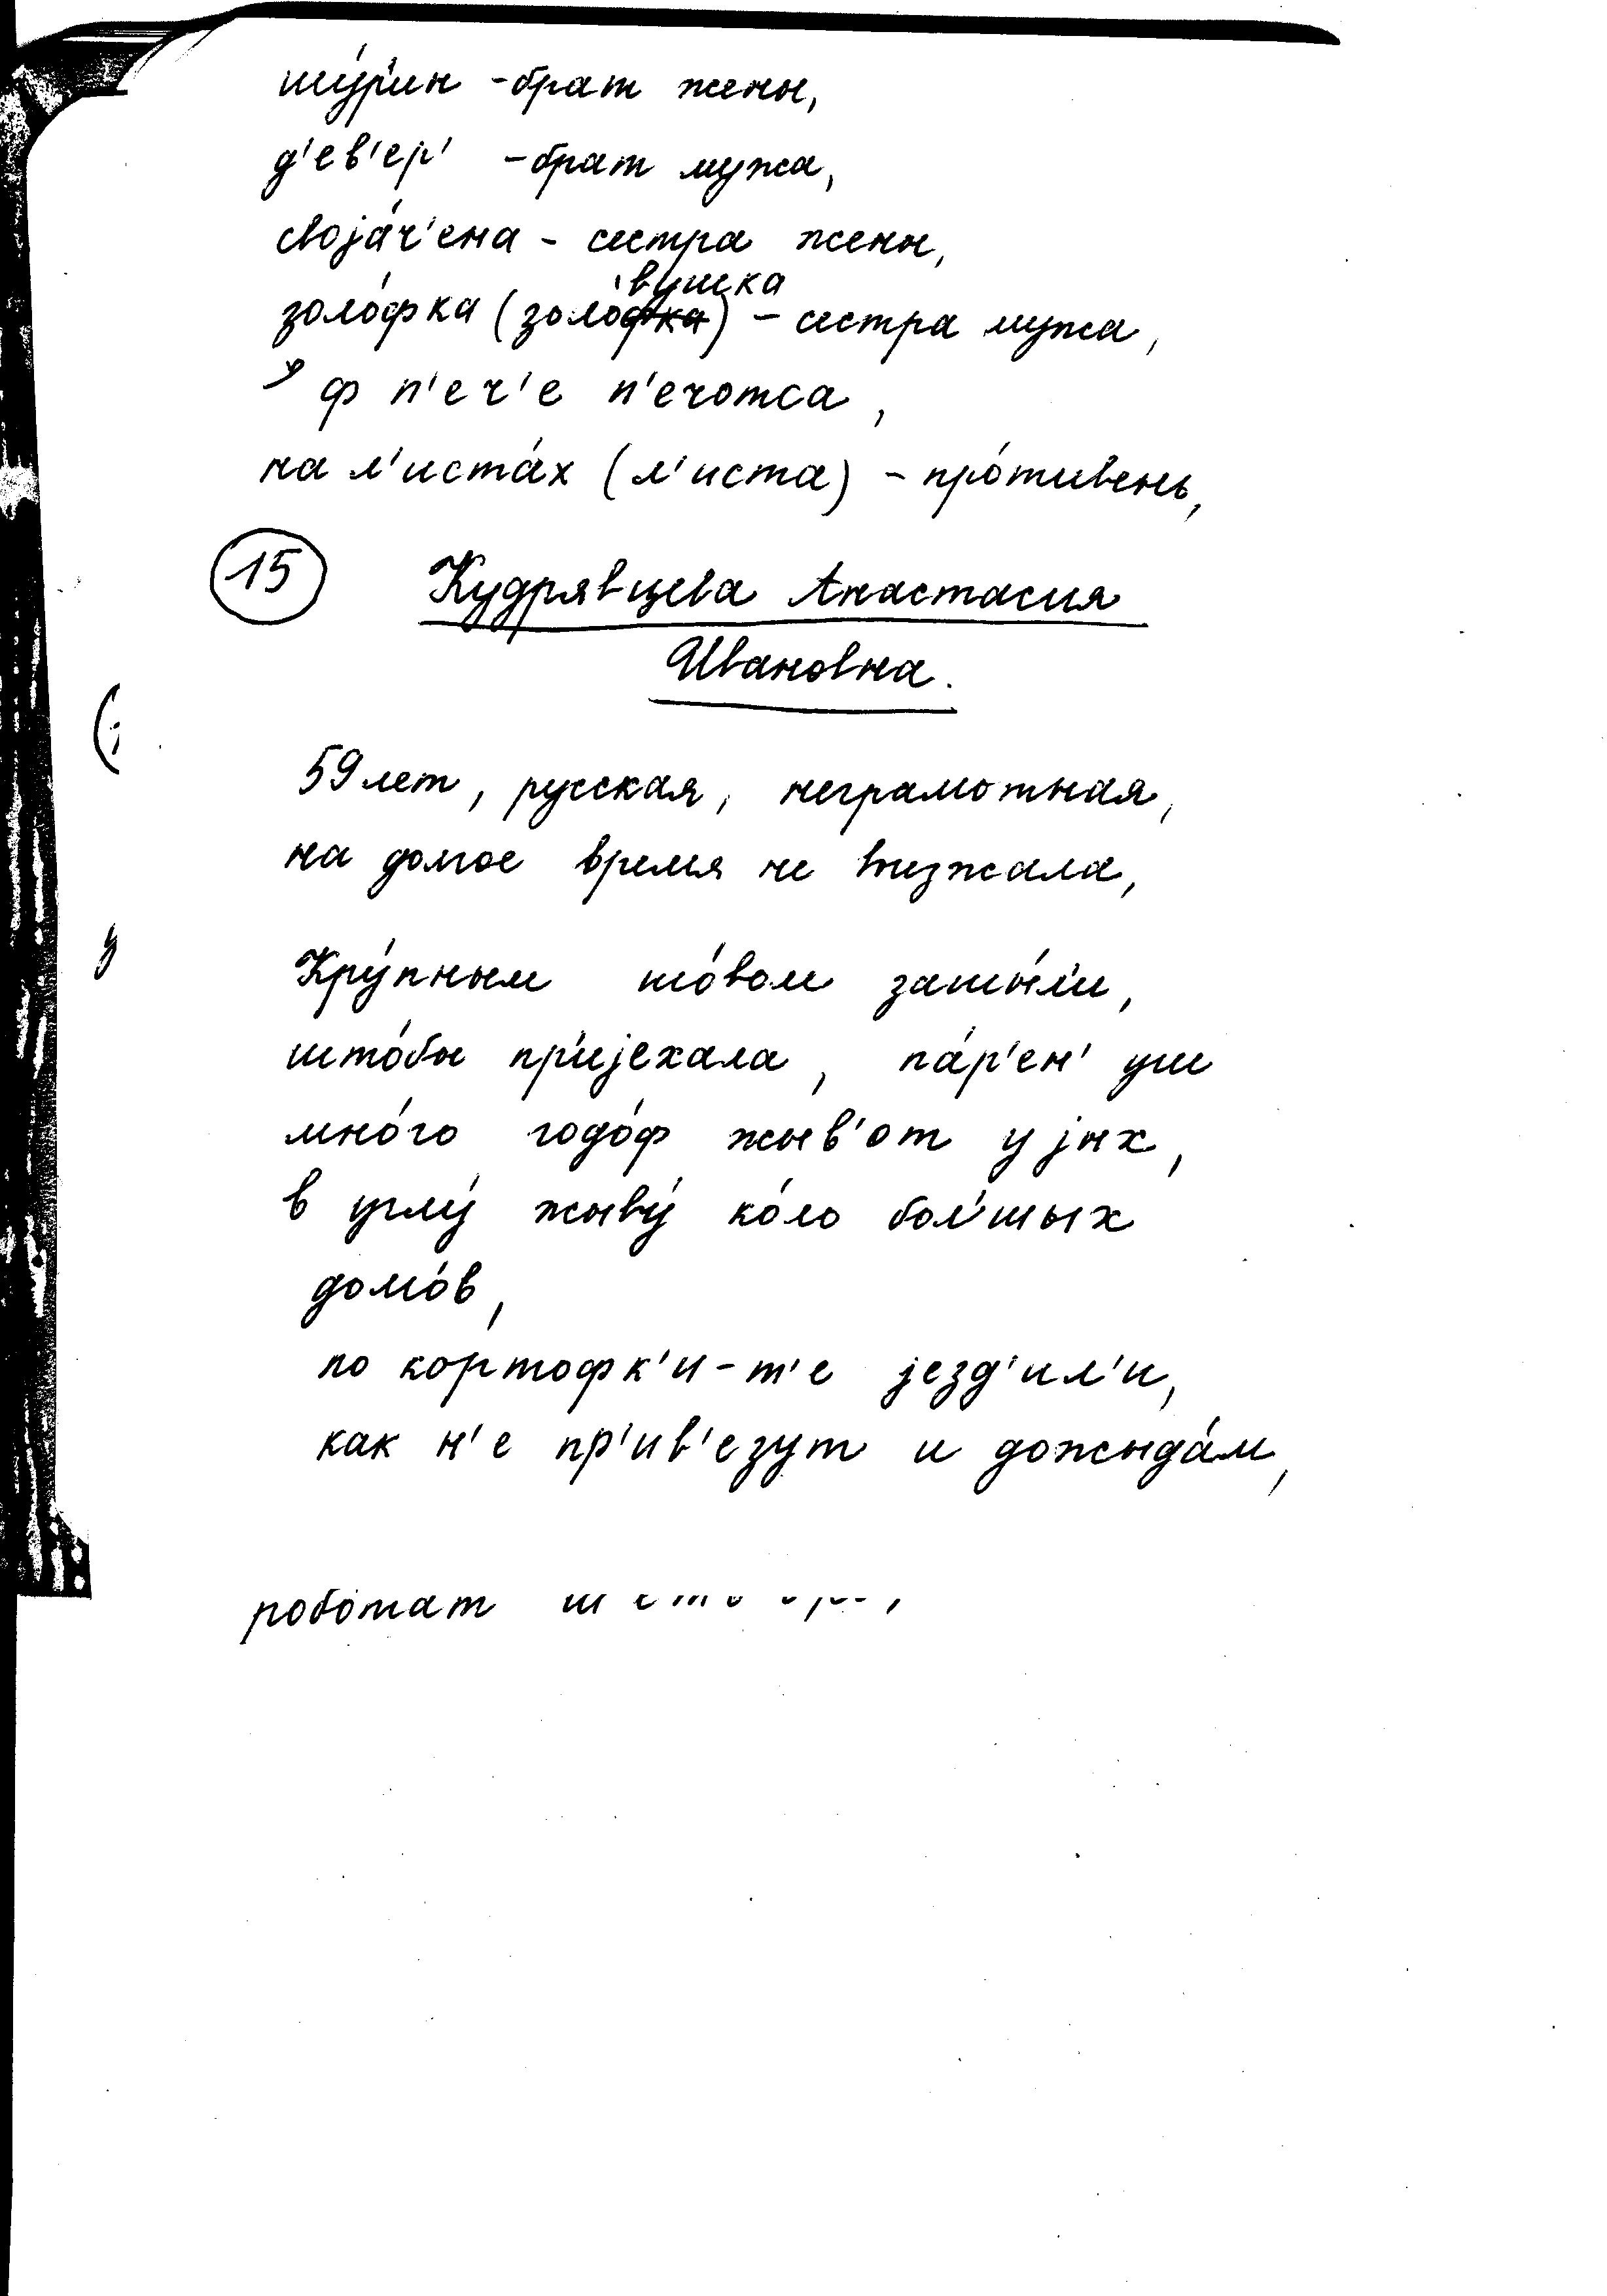 шу́р'ин - брат жены,
д'ев'ер' - брат мужа,
своjа́ч'ена - сестра жены,
золо́фка (золо́вушка) - сестра мужа,
ф п'еч'е п'ечотса,
на л'иста́х (л'иста) - про́тивень,
15 Кудрявцева Анастасия
Ивановна.
59 лет, русская, неграмотная,
на долгое время не
Кру́пным шо́вом зашы́л'и,
што́бы пр'иjехала, па́р'ен' уш
мно́го годо́ф жыв'от у jих,
в углу́ жыву́ ко́ло бол'шы́х
домо́в,
по кортофк'и-т'е jезд'ил'и,
как н'е пр'ив'езут и дожыда́м,
робо́тат